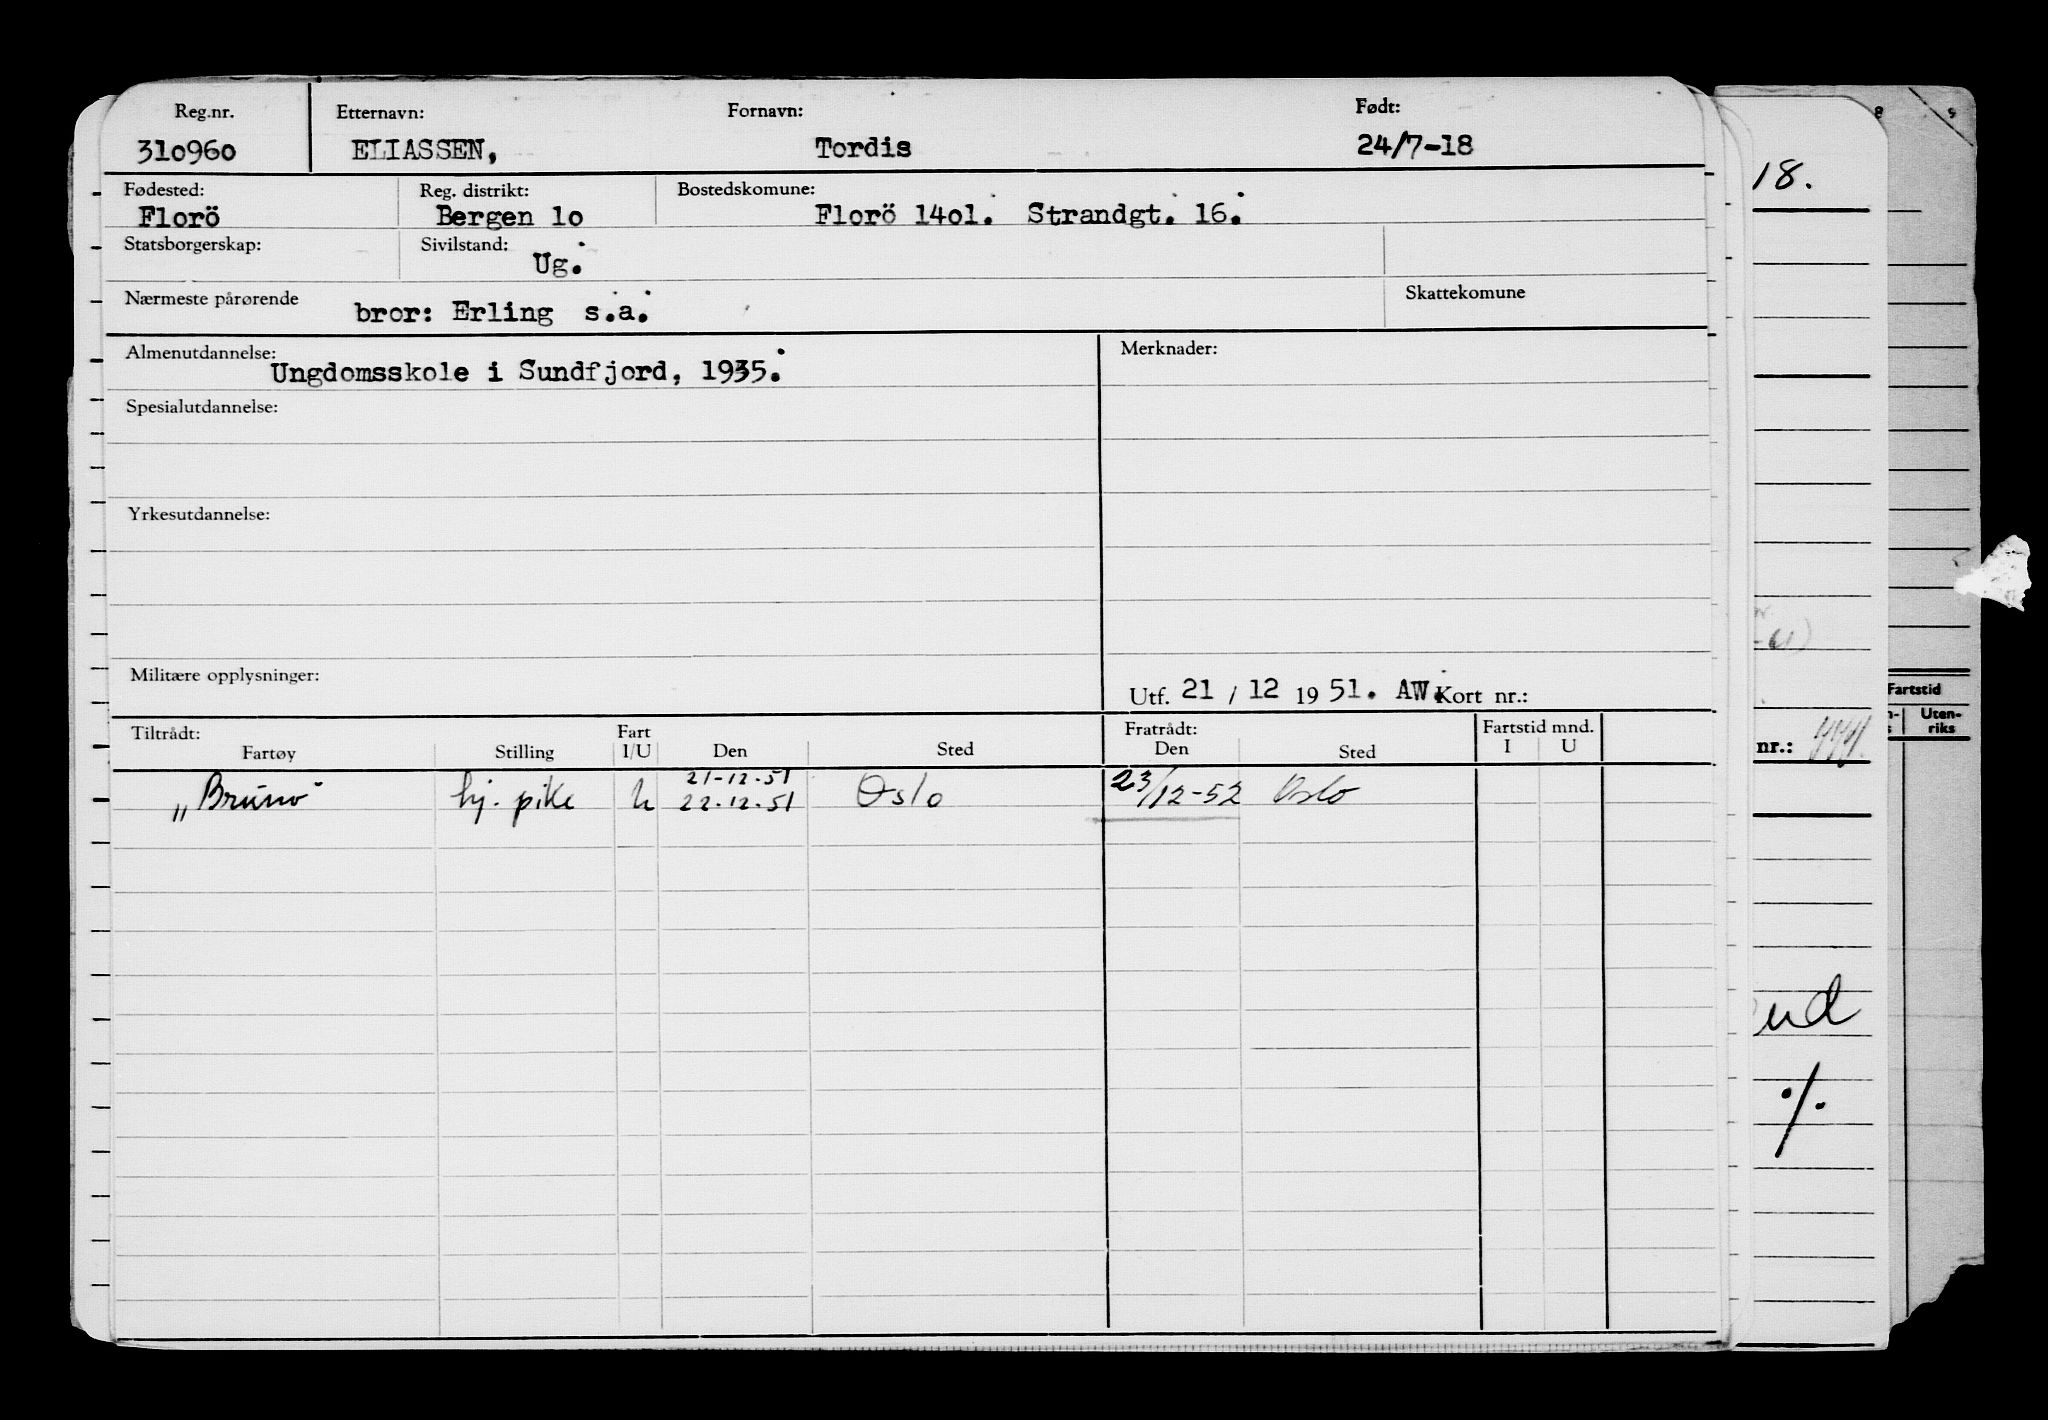 Reg.nr. Etternavn: Fornavn: Født:
310960 ELIASSEN, Tordis 24/7-18
Fødested: Reg. distrikt: Bostedskomune:
Florö Bergen 10 Florö 1401. Strandgt. 16.
Statsborgerskap: Sivilstand:
Ug.
Nærmeste pårørende bror: Erling s.a. Skattekomune
Almenutdannelse: Merknader:
Ungdomsskole i Sundfjord, 1935.
Spesialutdannelse:
Yrkesutdannelse:
Militære opplysninger:
Utf. 21 / 12 19 51. AW. Kort nr.:
Tiltrådt: Fart Fratrådt: Fartstid mnd.
Fartøy Stilling I/U Den Sted Den Sted I U
21-12-51
„Bruno" hj. pike U 22-12-51 Oslo 23/12-52 Oslo
8 9
18.
Fartstid
Uten-
riks
nr.: